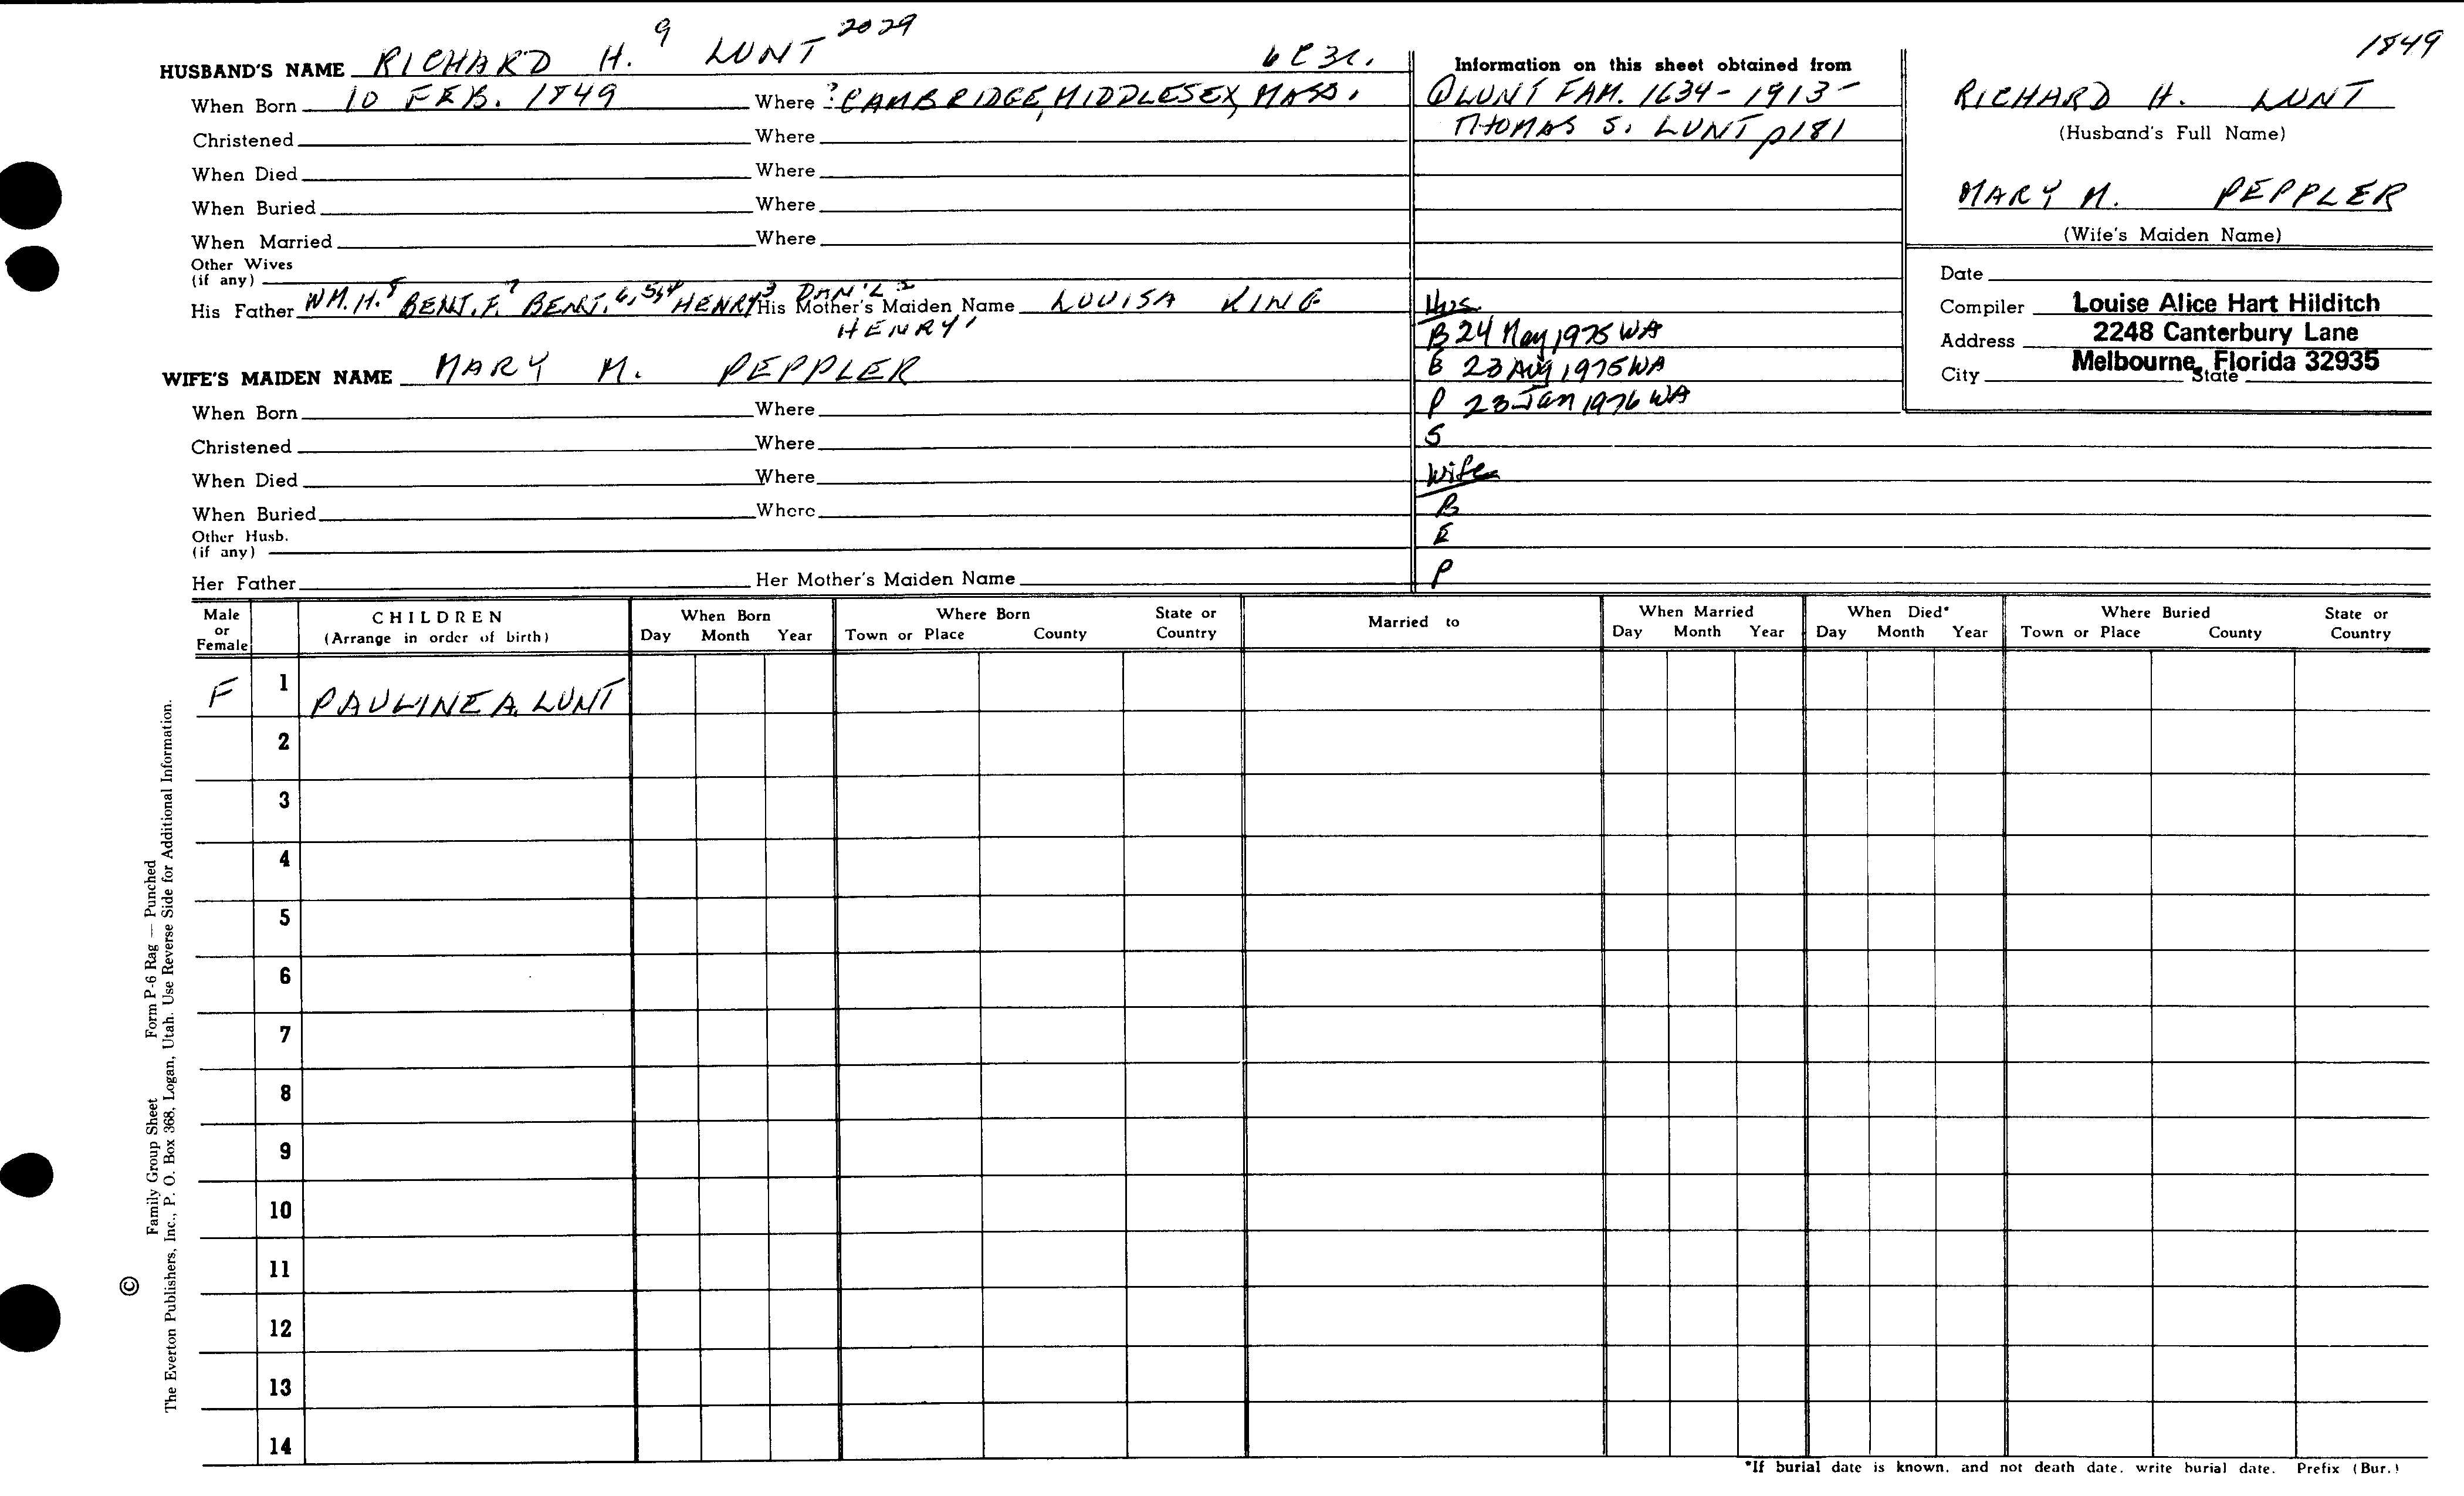 HUSBAND'S NAME RICHARD H. 9 LUNT 2029
When Born 10 FEB. 1849 Where ? CAMBRIDGE, MIDDLESEX, MASS.
Christened Where
When Died Where
When Buried Where
When Married Where
Other Wives
(if any)
His Father WM. H. 8 BENJ. F. 7 BENJ. 6, 5, 4 HENRY 3 DAN'L 2 HENRY 1 His Mother's Maiden Name LOUISA KING
WIFE'S MAIDEN NAME MARY M. PEPPLER
When Born Where
Christened Where
When Died Where
When Buried Where
Other Husb.
(if any)
Her Father Her Mother's Maiden Name
Information on this sheet obtained from
LUNT FAM. 1634-1913-
THOMAS S. LUNT p181
Hus.
B 24 May 1975 WA
E 23 Aug 1975 WA
P 23 Jan 1976 WA
S
Wife
B
E
P
1849
RICHARD H. LUNT
(Husband's Full Name)
MARY M. PEPPLER
(Wife's Maiden Name)
Date
Compiler Louise Alice Hart Hilditch
Address 2248 Canterbury Lane
City Melbourne, Florida 32935 State
Male or Female CHILDREN (Arrange in order of birth) When Born Day Month Year Where Born Town or Place County State or Country Married to When Married Day Month Year When Died* Day Month Year Where Buried Town or Place County State or Country
F 1 PAULINE A. LUNT
2
3
4
5
6
7
8
9
10
11
12
13
14
*If burial date is known, and not death date, write burial date. Prefix (Bur.)
© Family Group Sheet Form P-6 Rag — Punched
The Everton Publishers, Inc., P. O. Box 368, Logan, Utah. Use Reverse Side for Additional Information.